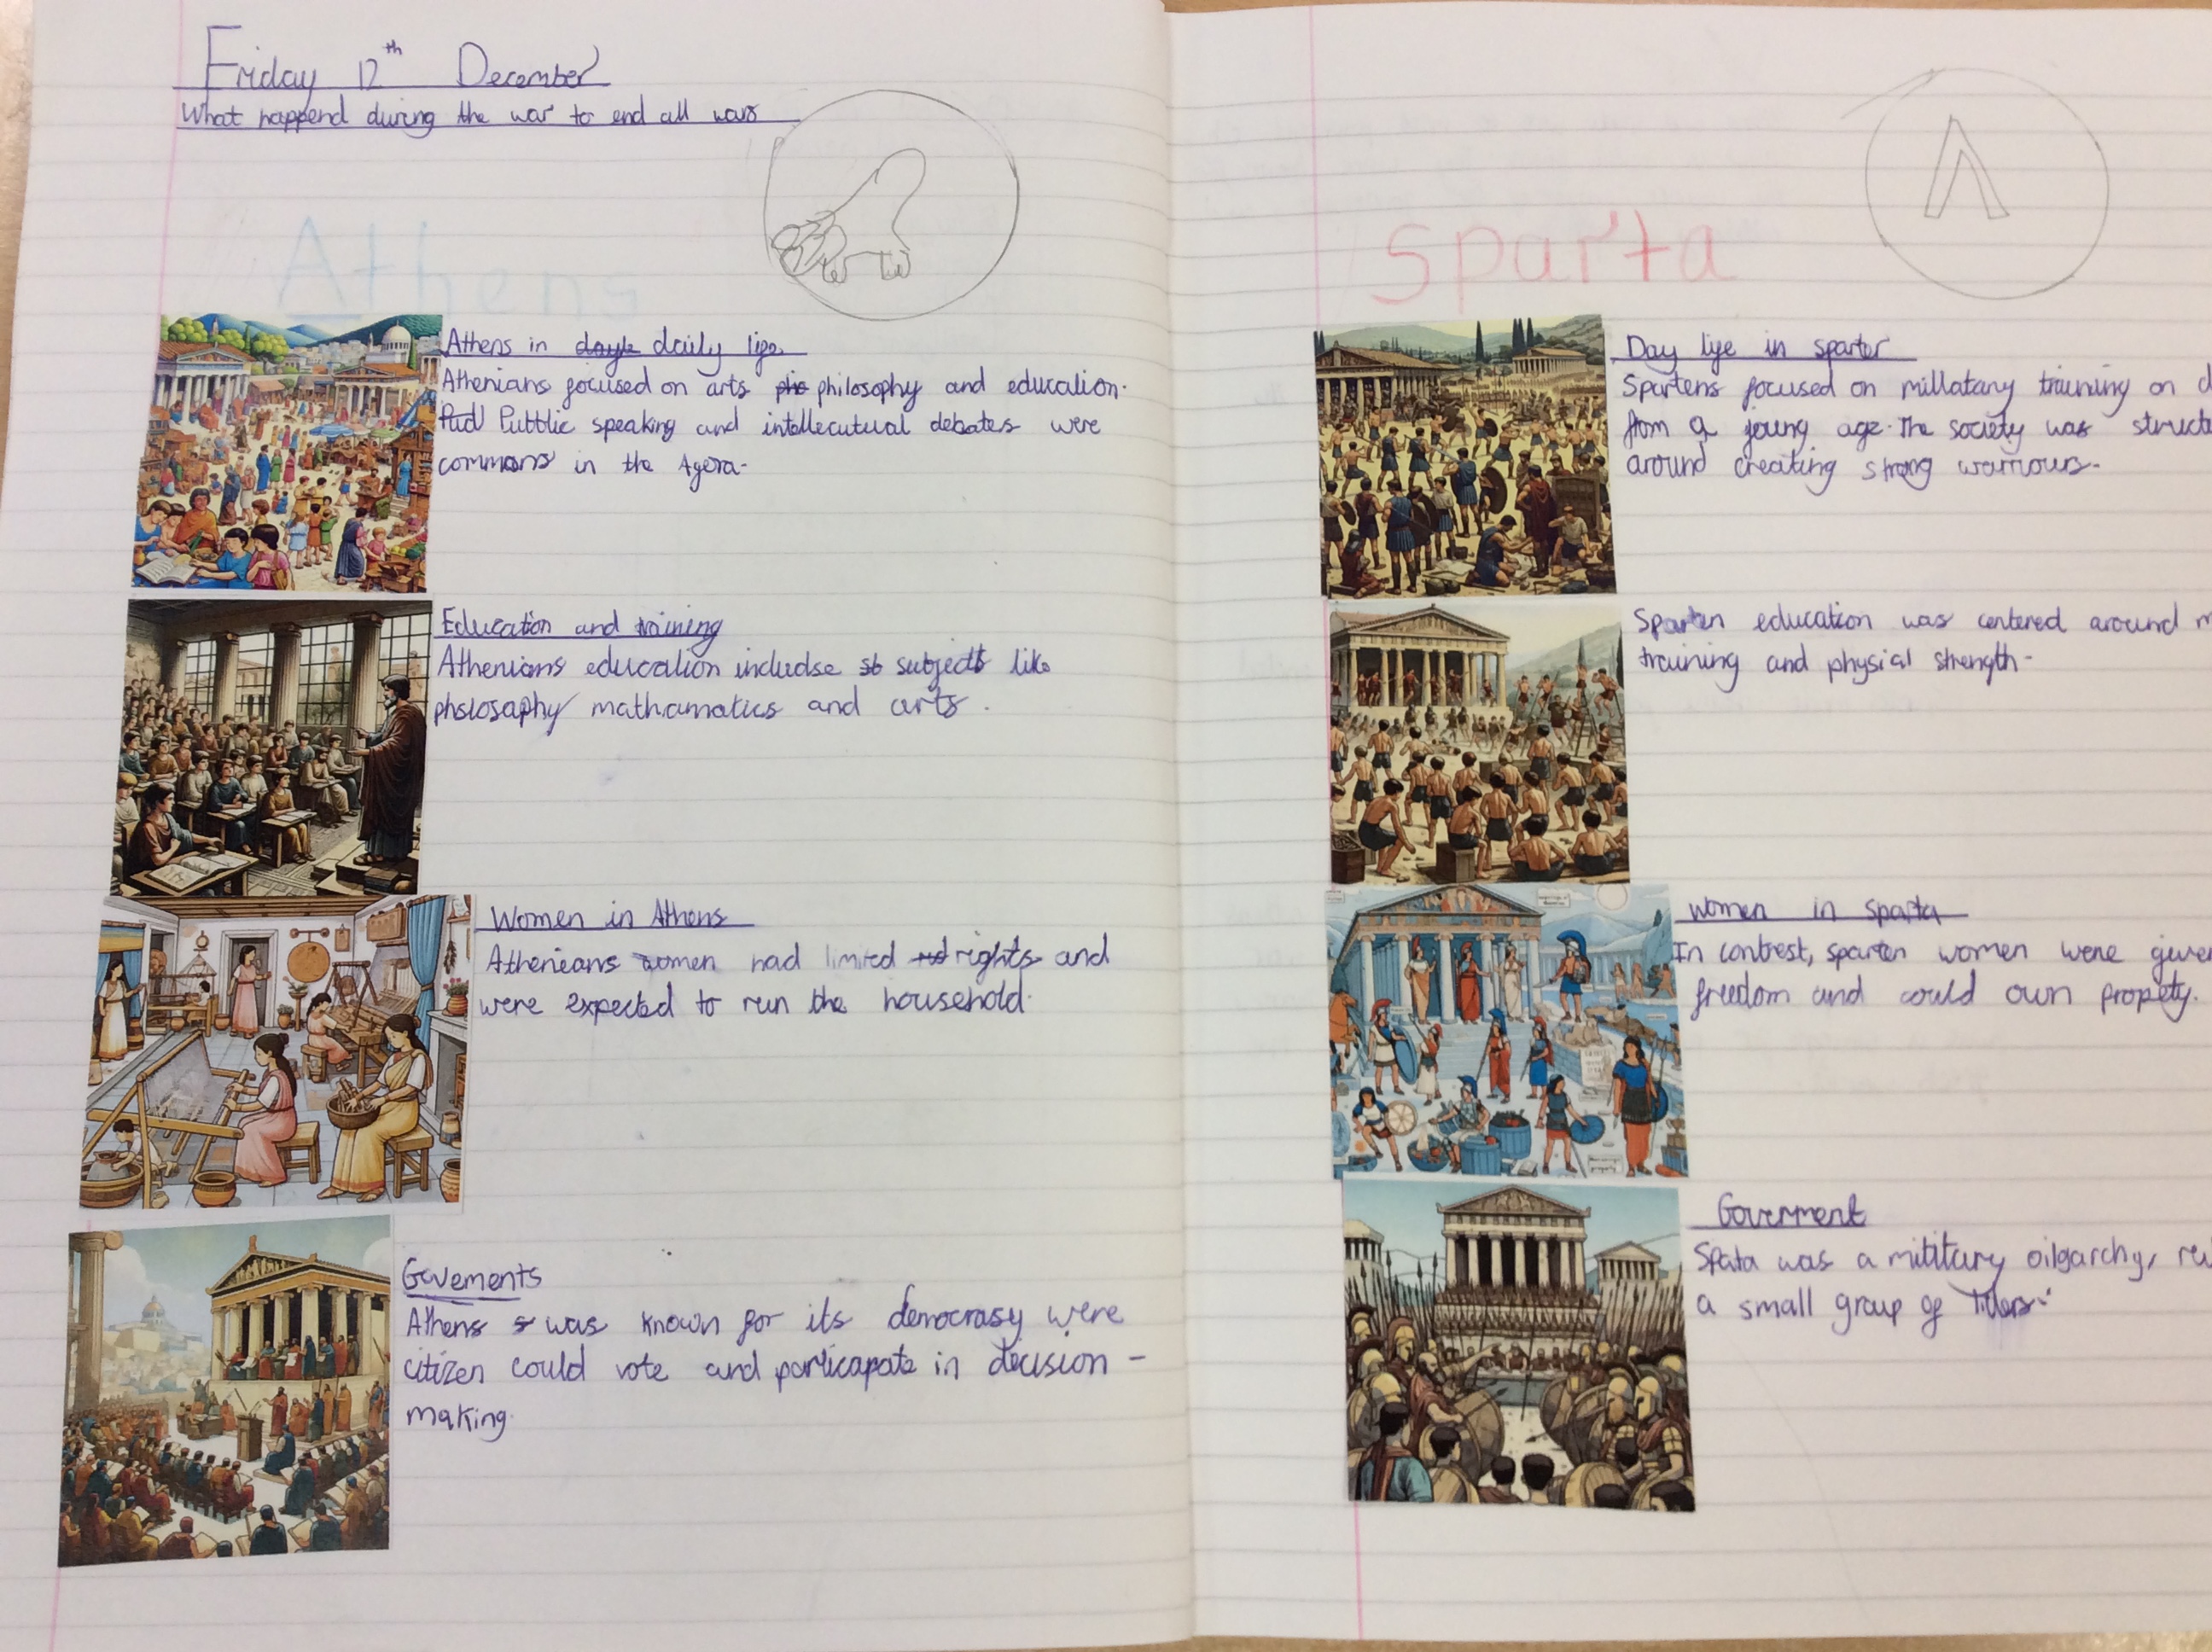 Friday 12th December
What happend during the war to end all wars
Athens
Athens in daily life.
Athenians focused on arts philosophy and education.
Pubblic speaking and intellecutual debates were
commons in the Agera.
Education and training
Athenians education includse subjects like
phslosaphy mathamatics and arts.
Women in Athens
Athenieans women had limited rights and
were expected to run the household.
Govements
Athens was known for its democrasy were
citizen could vote and particapate in decision-
making.
Sparta
Day life in sparter
Spartens focused on millatary training on
from a young age. The society was
around creating strong warriours.
Sparten education was centered around
training and physial strength.
Women in Sparta
In contrest, sparten women were
freedom and could own propety.
Government
Spata was a mititary oilgarchy,
a small group of